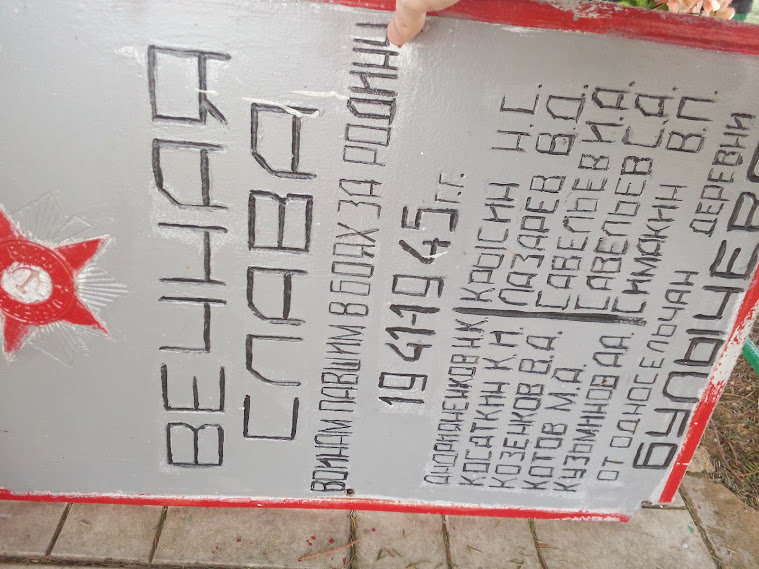 ВЕЧНАЯ
СЛАВА
ВОИНАМ ПАВШИМ В БОЯХ ЗА РОДИНУ
1941-1945 г.г.
АНДРИЯНЕНКОВ И.К. КРЫСИН Н.С.
КОСАТКИН К.Н. ЛАЗАРЕВ В.Д.
КОЗЕНКОВ В.Д. САВЕЛЬЕВ И.А.
КОТОВ М.Д. САВЕЛЬЕВ С.Д.
КУЗЬМИНОВ Д.Д. СИМАКИН В.П.
ОТ ОДНОСЕЛЬЧАН ДЕРЕВНИ
БУЛЫЧЕВО